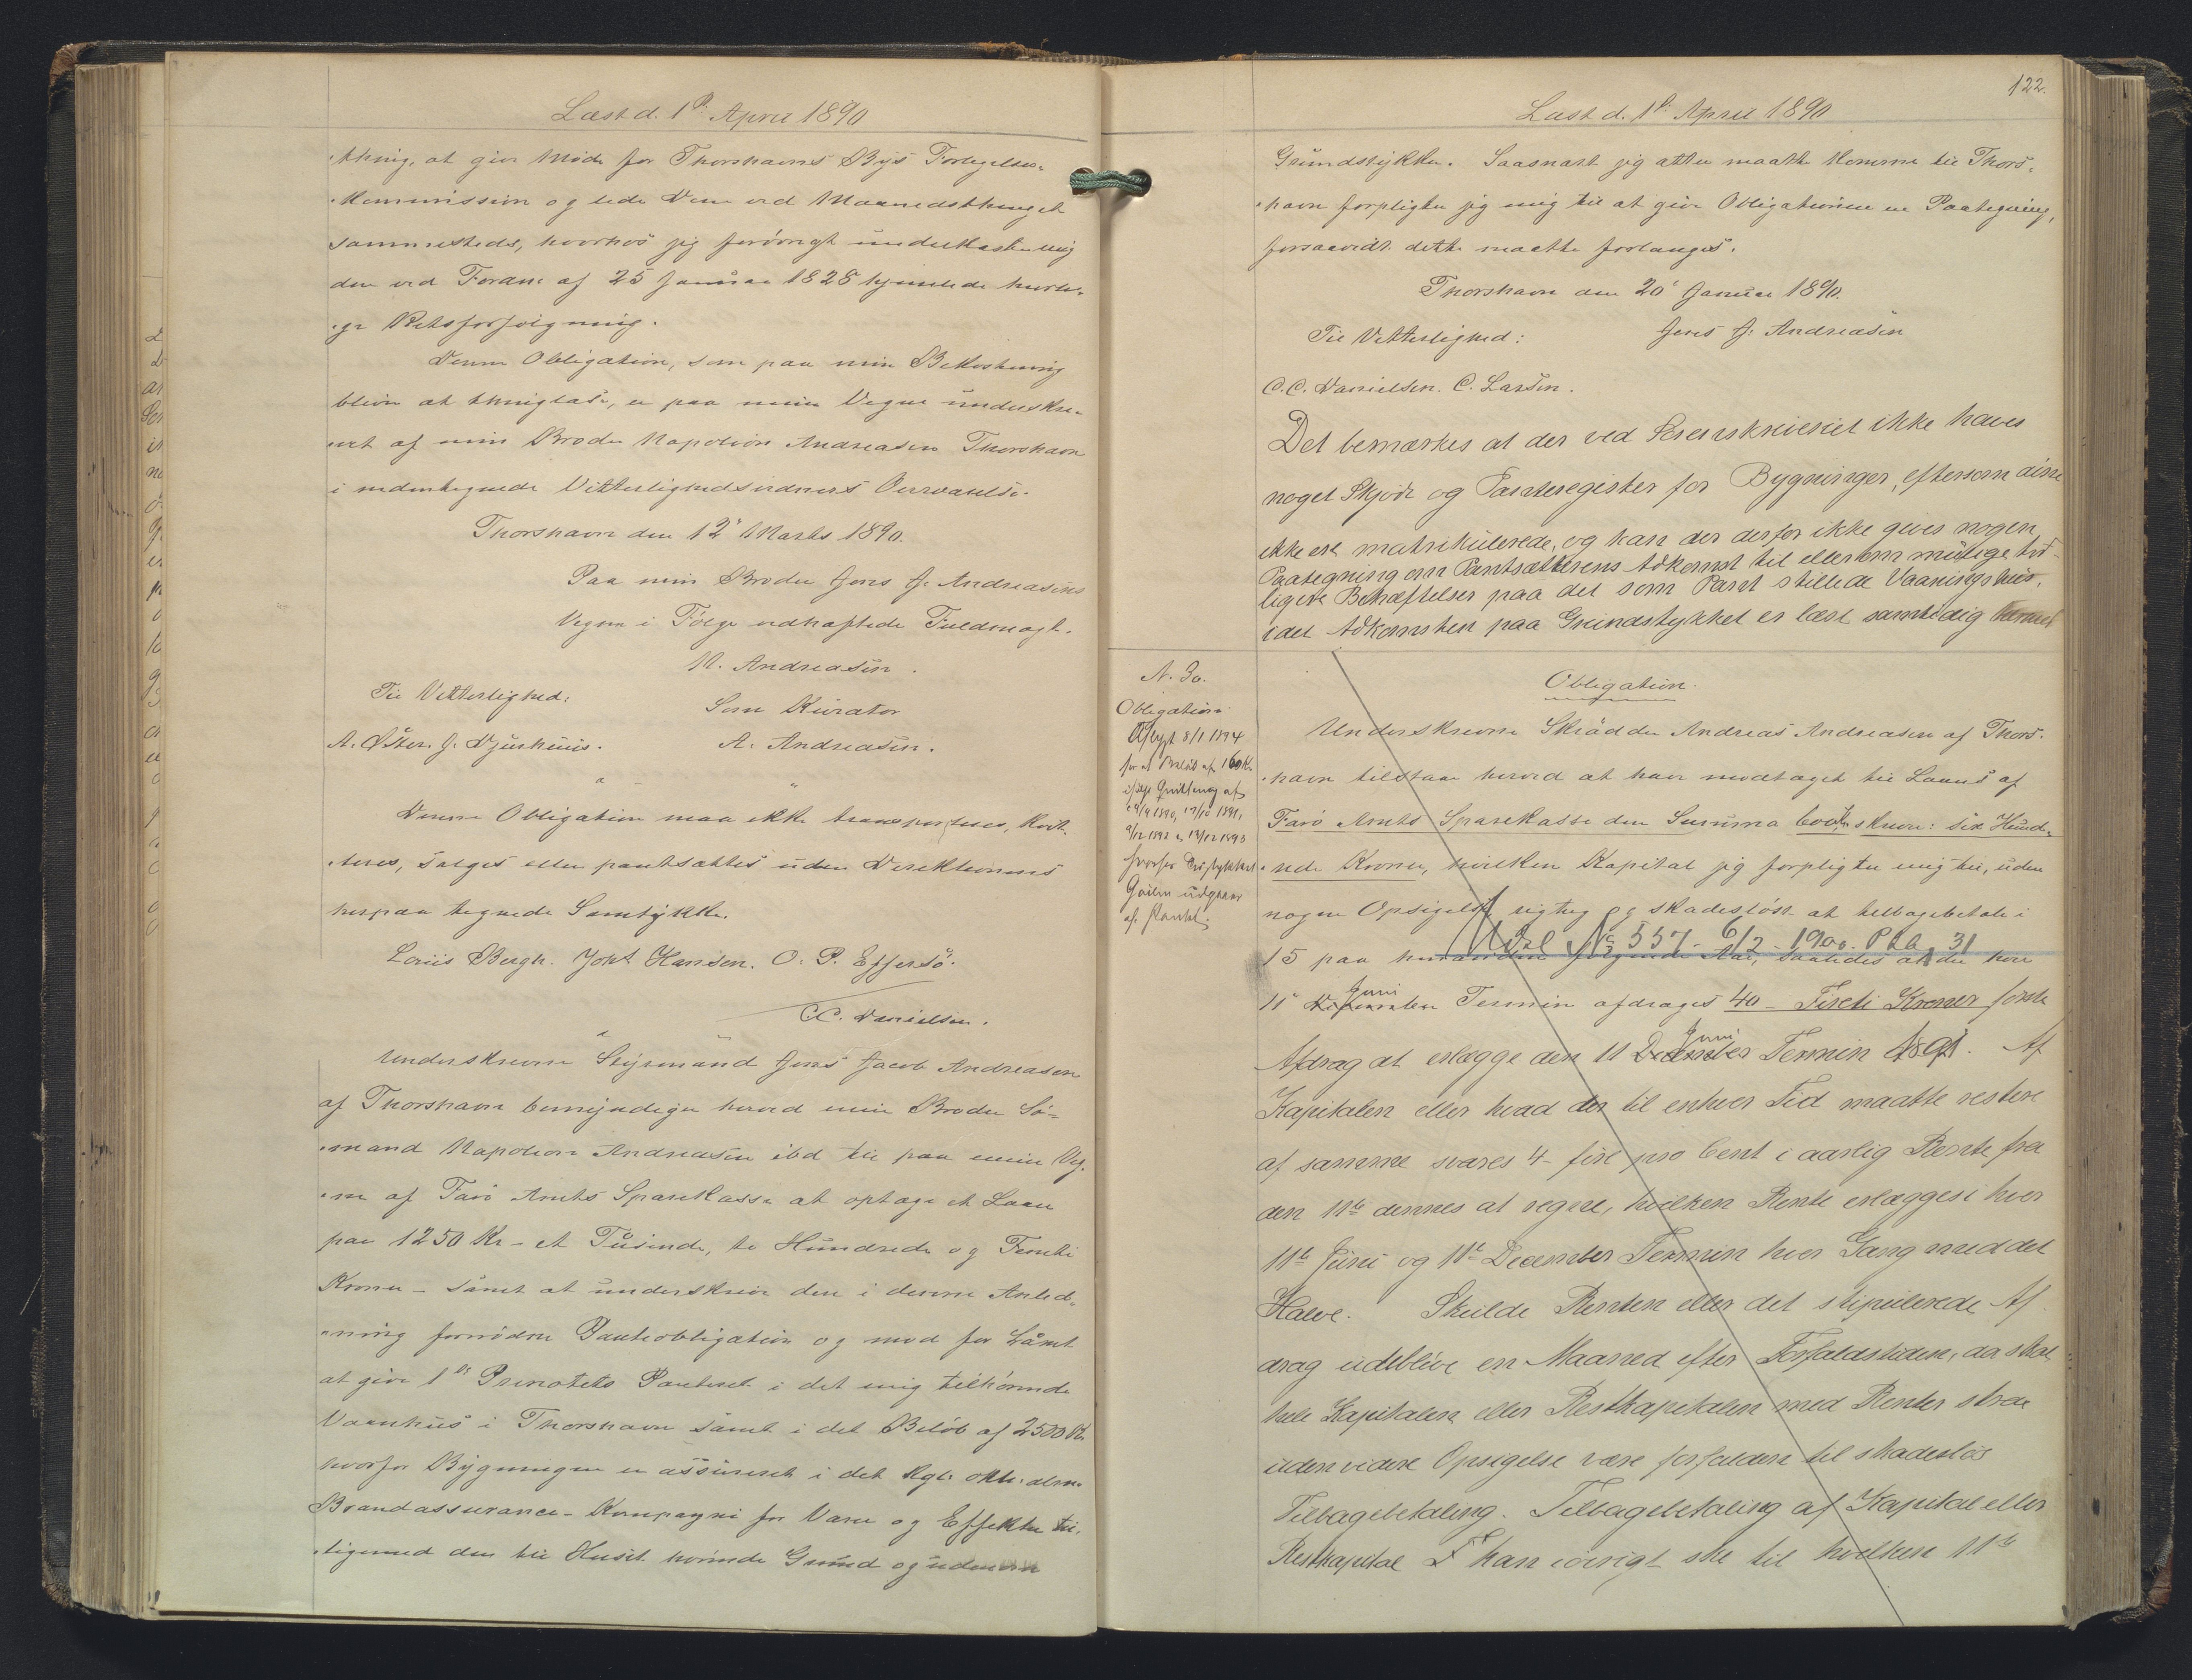 Læst d. 1ste April 1890
thing, at give Møde for Thorshavns Byes Forligelses-
Kommission og lide Dom ved Maanedsthinget
sammesteds, hvorhos jeg forøvrigt underkaster mig
den ved Forordn. af 25 Januar 1828 hjemlede hurti-
ge Retsforfølgning.
Denne Obligation, som paa min Bekostning
bliver at thinglæse, er paa mine Vegne underskre-
vet af min Broder Napoleon Andreasen Thorshavn
i nedentegnede Vitterlighedsvidners Overværelse.
Thorshavn den 12' Marts 1890.
Paa min Broder Jens J. Andreasens
Vegne i Følge vedhæftede Fuldmagt.
N. Andreasen.
Til Vitterlighed: Som Kurator
A. Øster. J. Djurhuus. A. Andreasen.
Denne Obligation maa ikke transporteres, kvit-
teres, sælges eller pantsættes uden Direktionens
herpaa tegnede Samtykke.
Louis Bergh. Joht Hansen. O. P. Effersø.
C.C. Danielsen.
Underskrevne Styrmand Jens Jacob Andreasen
af Thorshavn bemyndiger herved min Broder Sø-
mand Napoleon Andreasen ibd til paa mine Veg-
ne af Færø Amts Sparekasse at optage et Laan
paa 1250 Kr - et Tusinde, to Hundrede og Femti
Kroner - samt at underskrive den i denne Anled-
ning fornødne Panteobligation og mod for Lånet
at give 1ste Prioritets Panteret i det mig tilhørende
Vaanhus i Thorshavn samt i det Beløb af 2500 Kr.
hvorfor Bygningen er assureret i det Kgl. oktr. alm.
Brandassurance-Kompagni for Varer og Effekter til-
ligemed den til Huset hørende Grund og
122.
Læst d. 1ste April 1890
Grundstykke. Saasnart jeg atter maatte komme til Thors-
havn forpligter jeg mig til at give Obligationen en Paategning,
forsaavidt dette maatte forlanges.
Thorshavn den 20' Januar 1890.
Til Vitterlighed: Jens J. Andreasen
C.C. Danielsen. C. Larsen.
Det bemærkes at der ved Sorenskriveriet ikke haves
noget Skjøde og Panteregister for Bygninger, eftersom disse
ikke ere matrikulerede, og kan der derfor ikke gives nogen
Paategning om Pantsætterens Adkomst til eller om mulige tid-
ligere Behæftelser paa det som Pant stillede Vaaningshus,
idet Adkomsten paa Grundstykket er læst samtidig hermed
N. 30.
Obligation
Aflyst 8/1 1894
for et Beløb af 160 Kr
ifølge Quittering af
17/10 1891,
9/12 1892 & 13/12 1893
hvorfor
udgaaer
af Pantet.
Obligation.
Underskrevne Skrædder Andreas Andreasen af Thors-
havn tilstaar herved at have modtaget til Laans af
Færø Amts Sparekasse den Summa 600 Kr skriver: sex Hund-
rede Kroner, hvilken Kapital jeg forpligter mig til, uden
nogen Opsigelse rigtig og skadesløst at tilbagebetale i
Udsl. No 557 - 6/2 - 1900. Pkb. 31
15 paa hinanden følgende Aar, saaledes at der hver
11' December Juni Termin afdrages 40 - Fireti Kroner første
Afdrag at erlægge den 11 December Juni Termin 1891. Af
Kapitalen eller hvad der til enhver Tid maatte restere
af samme svares 4 - fire pro Cent i aarlig Rente fra
den 11te dennes at regne, hvilken Rente erlægges i hver
11te Juni og 11te December Termin hver Gang med det
Halve. Skulde Renten eller det stipulerede Af-
drag udeblive en Maaned efter Forfaldstiden, da skal
hele Kapitalen eller Restkapitalen med Renter strax
uden videre Opsigelse være forfalden til skadesløs
Tilbagebetaling. Tilbagebetaling af Kapital eller
Restkapital kan iøvrigt ske til hvilken 11te